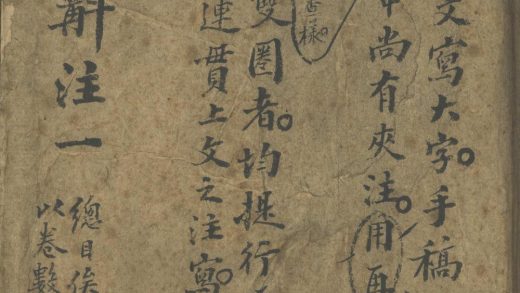 文寫大字。手稿
中尚有夾注。用再
舌樣
雙圈者。均提行
連貫上文之注寫。
斠注一
總目俟
以卷數